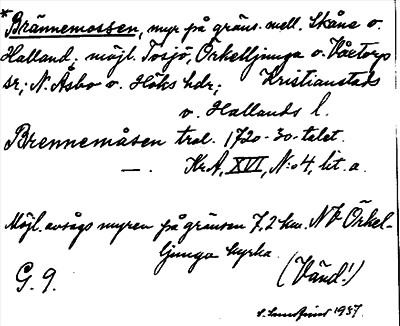 *Brännemossen, myr på gräns. mell. Skåne o.
Halland; möjl. Tosjö, Örkelljunga o. Våxtorp
sr; N. Åsbo o. Höks hdr; Kristianstads
o. Hallands l.
Brennemåsen trol. 1720-30-talet.
—. KrA, XVI, N:o 4, lit. a.
Möjl. avsågs myren på gränsen 7,2 km. NV Örkel-
ljunga kyrka.
G. 9. (Vänd!)
1937.